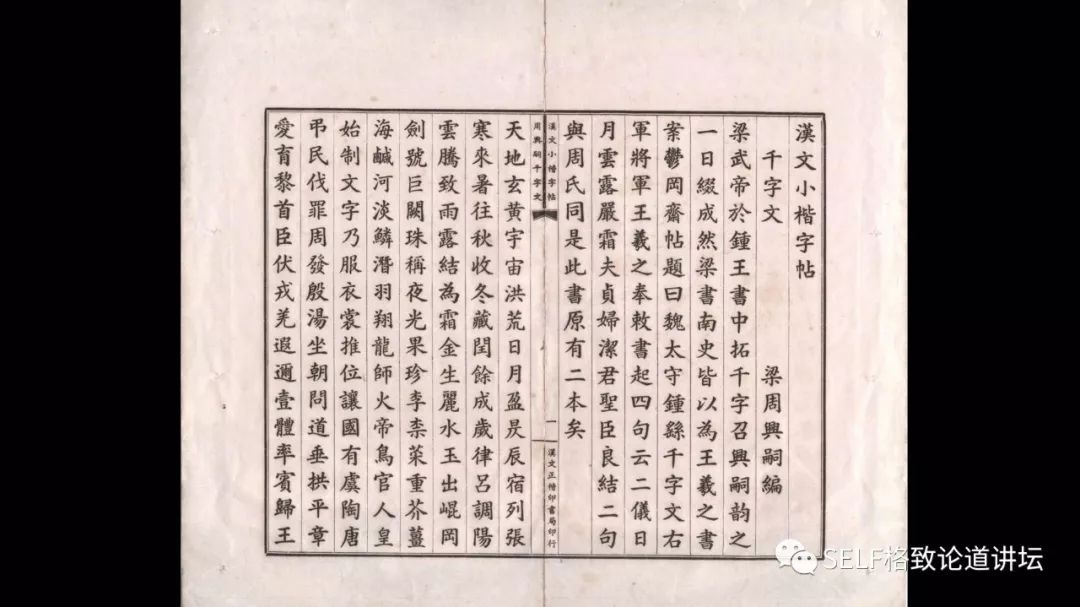 漢文小楷字帖
千字文 梁周興嗣編
梁武帝於鍾王書中拓千字召興嗣韵之
一日綴成然梁書南史皆以為王羲之書
案鬱岡齋帖題曰魏太守鍾繇千字文右
軍將軍王羲之奉敕書起四句云二儀日
月雲露嚴霜夫貞婦潔君聖臣良結二句
與周氏同是此書原有二本矣
漢文小楷字帖
周興嗣千字文
一
漢文正楷印書局印行
天地玄黃宇宙洪荒日月盈昃辰宿列張
寒來暑往秋收冬藏閏餘成歲律呂調陽
雲騰致雨露結為霜金生麗水玉出崐岡
劍號巨闕珠稱夜光果珍李柰菜重芥薑
海鹹河淡鱗潛羽翔龍師火帝鳥官人皇
始制文字乃服衣裳推位讓國有虞陶唐
弔民伐罪周發殷湯坐朝問道垂拱平章
愛育黎首臣伏戎羌遐邇壹體率賓歸王
SELF格致论道讲坛